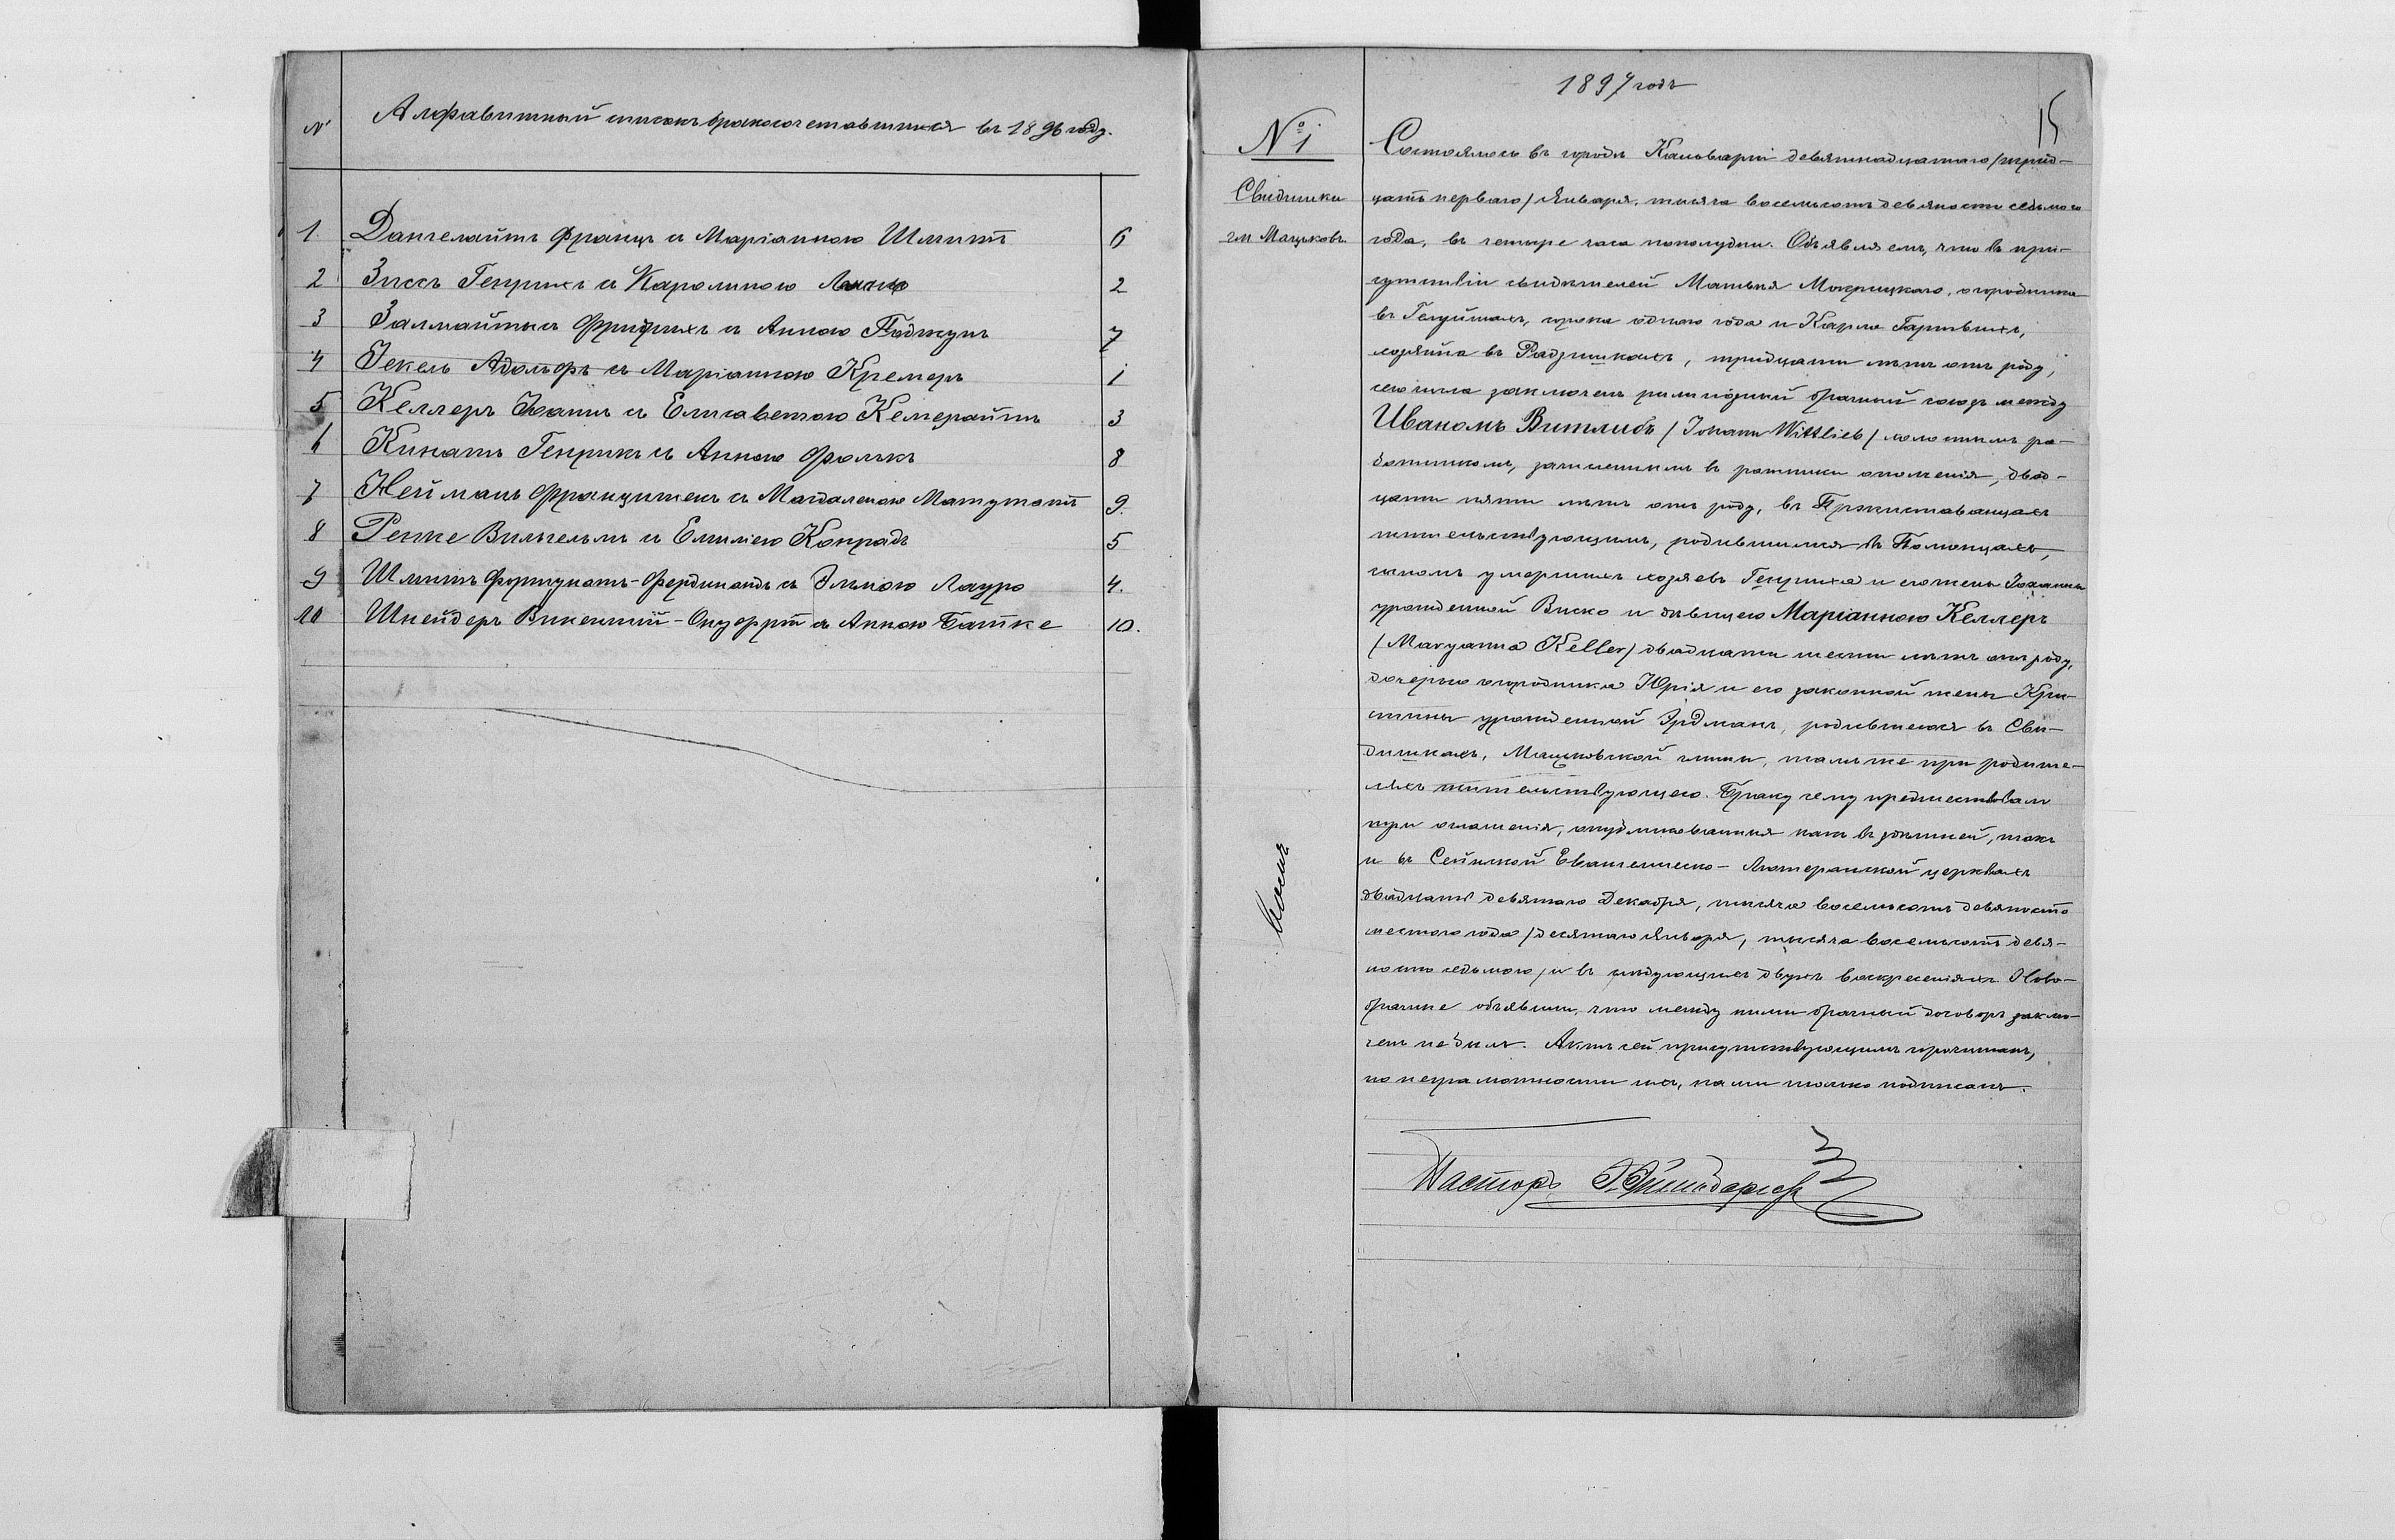 № Алфавитный списокъ бракосочетавшихся въ 1896 году.
1 Дангелайтъ Францъ съ Маріанною Шмитъ 6
2 Зиссъ Генрихъ съ Каролиною 2
3 Залмайтысъ Фридрихъ съ Анною 7
4 Іекель Адольфъ съ Маріанною Кремеръ 1
5 Келлеръ Іоганъ съ Елисаветою Кемерайтъ 3
6 Кинатъ Генрихъ съ Анною Фолькъ 8
7 Нейманъ Францишекъ съ Магдаленою Матутатъ 9.
8 Репке Вильгельмъ съ Емиліею Конрадъ 5
9 Шмитъ Фортунатъ-Фердинандъ съ Эльмою Лауро 4.
10 Шнейдеръ Викентій-Онуфрій съ Анною Батке 10.
1897 годъ
15
№ 1
Свидишки
гм Мацьковъ
Состоялось въ городѣ Кальваріи девятнадцатаго /трид-
цать перваго/ Января, тысяча восемьсотъ девяносто седьмого
года, въ четыре часа пополудни. Объявляемъ, что въ при-
сутствіи свидѣтелей Матвѣя Мокрицкаго, огородника
въ сорока одного года и Карла
хозяина въ Радзишкахъ, тридцати лѣтъ отъ роду,
сего числа заключенъ религіозный брачный союзъ между
Иваномъ Витлибъ /Johann Wittlieb/ холостымъ ра-
ботникомъ, зачисленнымъ въ ратники ополченія, двад-
цати пяти лѣтъ отъ роду, въ
жительствующимъ, родившимся въ
сыномъ умершихъ хозяевъ Генриха и его жены Іоганны
урожденной Виско и дѣвицею Маріанною Келлеръ
/Maryanna Keller/ двадцати шести лѣтъ отъ роду,
дочерью огородника Юрія и его законной жены Кри-
стины урожденной Эрдманъ, родившеюся въ Сви-
дишкахъ, Мацьковской гмины, тамъ же при родите-
ляхъ жительствующею. Браку сему предшествовали
три оглашенія, опубликованныя какъ въ здѣшней, такъ
и въ Сейнской Евангелическо-Лютеранской церквахъ
двадцать девятаго Декабря, тысяча восемьсотъ девяносто
шестого года /десятаго Января, тысяча восемьсотъ девя-
носто седьмого/ и въ слѣдующихъ двухъ воскресеніяхъ. Ново-
брачные объявили, что между ними брачный договоръ заклю-
ченъ не былъ. Актъ сей присутствующимъ прочитанъ,
по неграмотности ихъ, нами только подписанъ.
Пасторъ